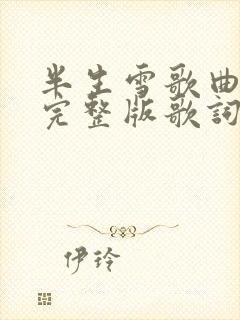 半生雪歌曲
完整版歌詞
伊玲